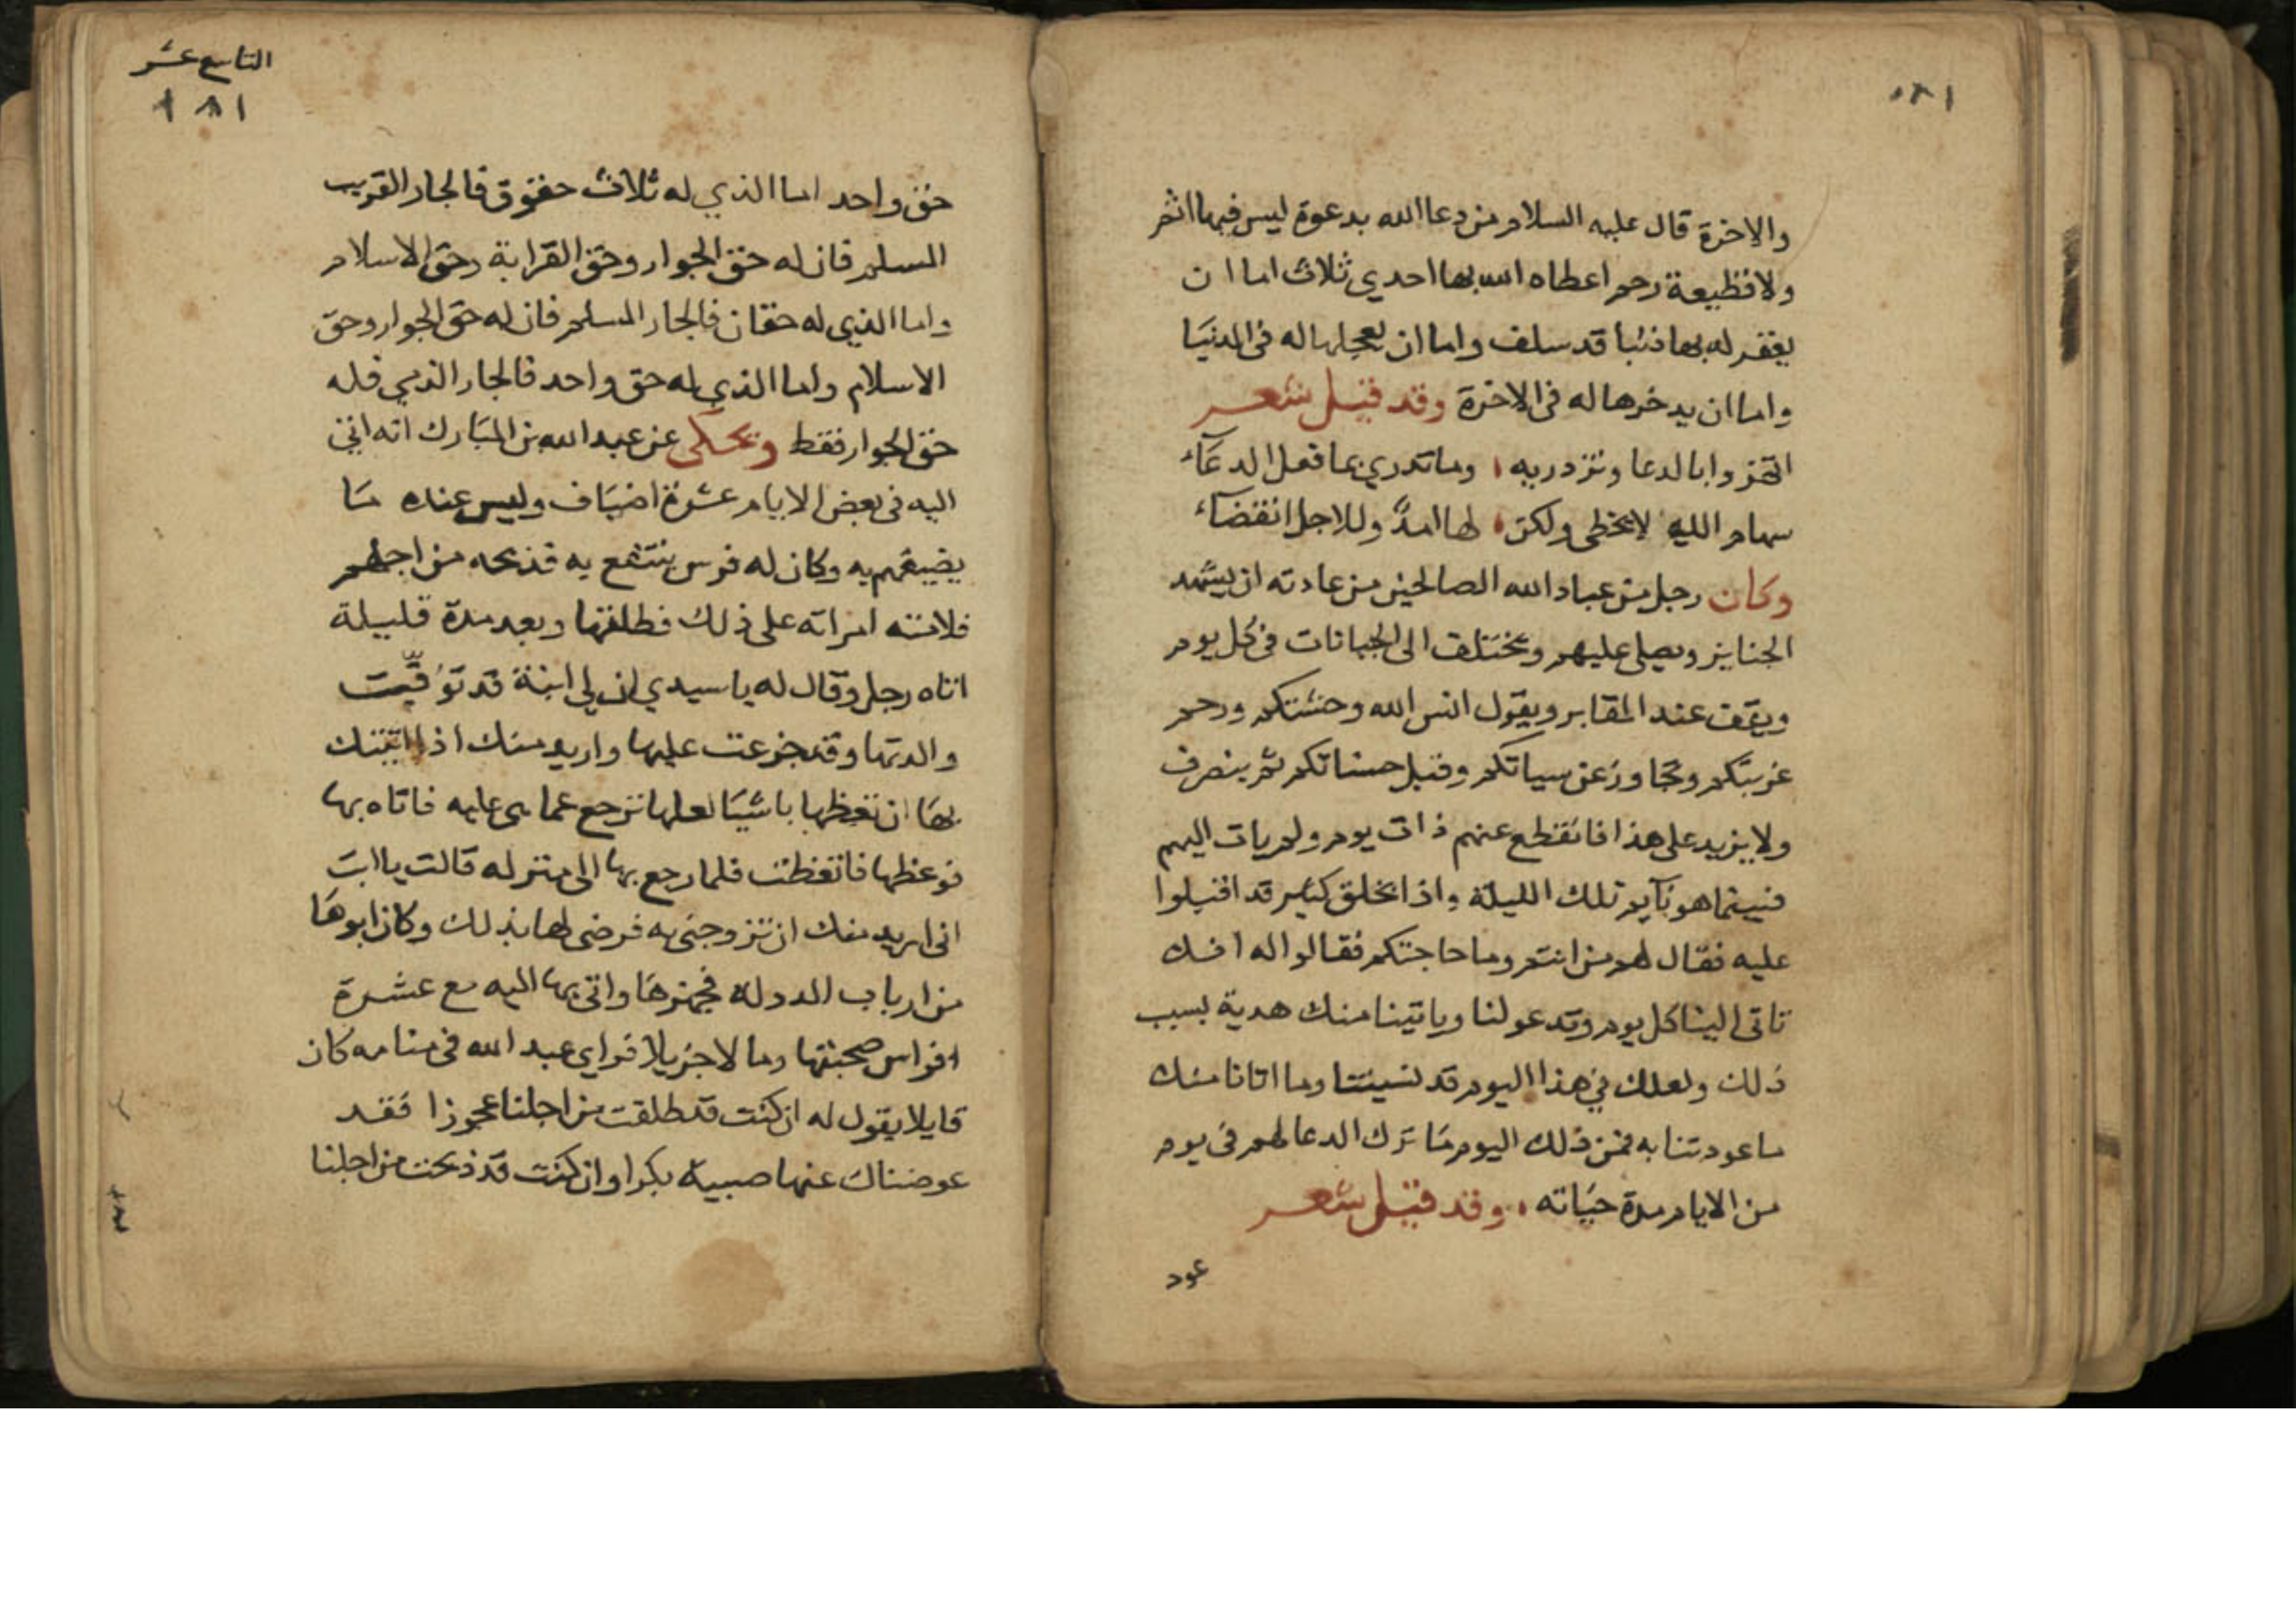 ١٨٠
والاخرة قال عليه السلام من دعا الله بدعوة ليس فيها اثم
ولا قطيعة رحم اعطاه الله بها احدي ثلاث اما ان
يغفر له بها ذنبا قد سلف واما ان يعجلها له في الدنيا
واما ان يدخرها له في الاخرة وقد قيل شعر
اتهزوا بالدعا وتزدريه وما تدري بما فعل الدعاء
سهام الليل لا تخطي ولكن لها امد وللاجل انقضاء
وكان رجل من عباد الله الصالحين من عادته ان يشهد
الجنايز ويصلي عليهم ويختلف الى الجبانات في كل يوم
ويقف عند المقابر ويقول انس الله وحشتكم ورحم
غربتكم وتجاوز عن سياتكم وقبل حسناتكم ثم ينصرف
ولا يزيد على هذا فانقطع عنهم ذات يوم ولم يات اليهم
فبينما هو نايم تلك الليلة واذا بخلق كثير قد اقبلوا
عليه فقال لهم من انتم وما حاجتكم فقالوا له انك
تاتي الينا كل يوم وتدعو لنا وياتينا منك هدية بسبب
ذلك ولعلك في هذا اليوم قد نسيتنا وما اتانا منك
ما عودتنا به فمن ذلك اليوم ما ترك الدعا لهم في يوم
من الايام مدة حياته وقد قيل شعر
عود
التاسع عشر
١٨١
حق واحد اما الذي له ثلاث حقوق فالجار القريب
المسلم فان له حق الجوار وحق القرابة وحق الاسلام
واما الذي له حقان فالجار المسلم فان له حق الجوار وحق
الاسلام واما الذي له حق واحد فالجار الذمي فله
حق الجوار فقط ويحكى عن عبد الله بن المبارك انه اتى
اليه في بعض الايام عشرة اضياف وليس عنده ما
يضيفهم به وكان له فرس ينتفع به فذبحه من اجلهم
فلامته امراته على ذلك فطلقها وبعد مدة قليلة
اتاه رجل وقال له يا سيدي ان لي ابنة قد توفيت
والدتها وقد جزعت عليها واريد منك اذا اتيتك
بها ان تعظها باشيا لعلها ترجع عما هي عليه فاتاه بها
فوعظها فاتعظت فلما رجع بها الى منزله قالت يا ابت
اني اريد منك ان تزوجني به فرضى لها بذلك وكان ابوها
من ارباب الدولة فجهزها واتي بها اليه مع عشرة
افراس صحبتها ومالا جزيلا فراي عبد الله في منامه كان
قايلا يقول له ان كنت قد طلقت من اجلنا عجوزا فقد
عوضناك عنها صبية بكرا وان كنت قد ذبحت من اجلنا